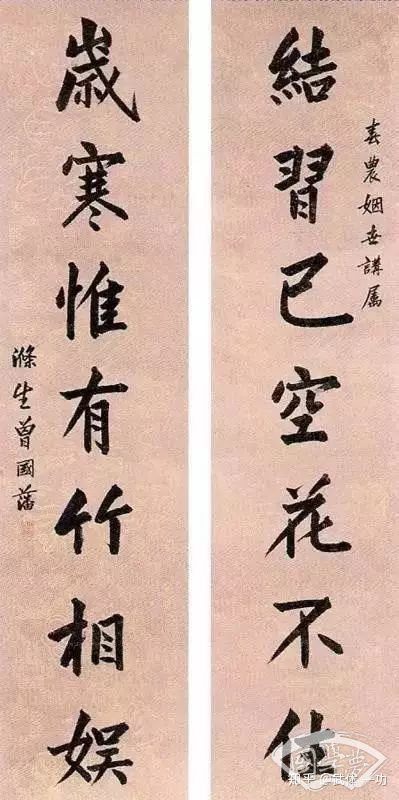 春農姻世講属
結習已空花不住
歲寒惟有竹相娱
滌生曾國藩
知乎